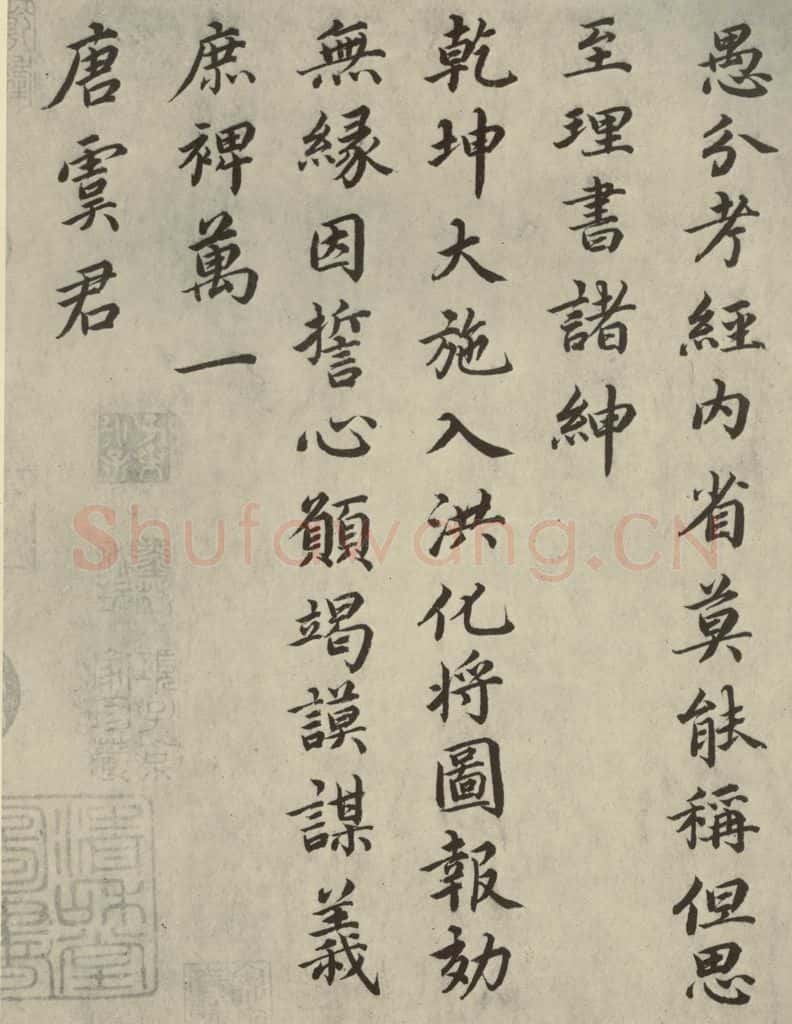 愚分考經内省莫能稱但思
至理書諸紳
乾坤大施入洪化将圖報効
無縁因誓心願竭謨謀義
庶裨萬一
唐虞君
Shufawang.CN